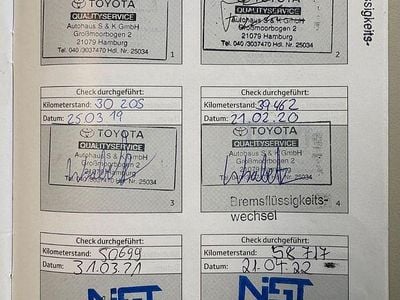 TOYOTA
QUALITYSERVICE
Autohaus S & K GmbH
Großmoorbogen 2
21079 Hamburg
Tel. 040 /3037470 Hdl. Nr. 25034
1
TOYOTA
QUALITYSERVICE
Autohaus S & K GmbH
Großmoorbogen 2
21079 Hamburg
Tel. 040 /3037470 Hdl. Nr. 25034
2
Check durchgeführt:
Kilometerstand: 30 205
Datum: 25.03.19
TOYOTA
QUALITYSERVICE
Autohaus S & K GmbH
Großmoorbogen 2
Hamburg
Nr. 25034
3
Check durchgeführt:
Kilometerstand: 39462
Datum: 21.02.20
TOYOTA
QUALITYSERVICE
Autohaus S & K GmbH
Großmoorbogen 2
Hdl. Nr. 25034
Bremsflüssigkeits-
wechsel
4
Check durchgeführt:
Kilometerstand: 50699
Datum: 31.03.21
Check durchgeführt:
Kilometerstand: 58 717
Datum: 21.04.22